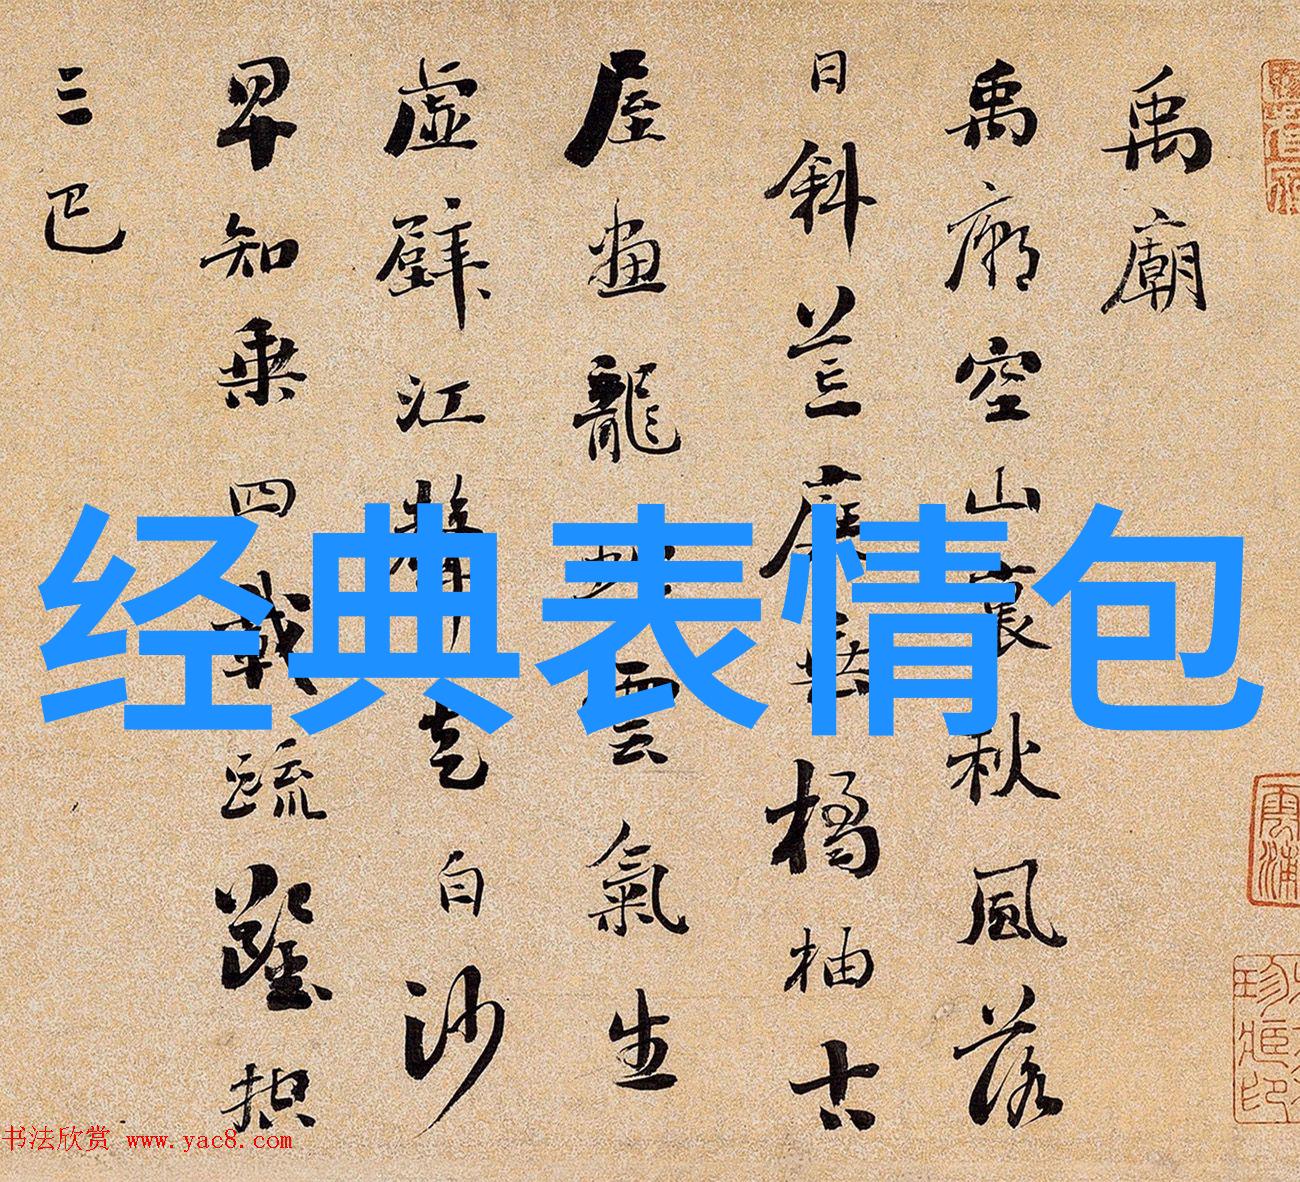 禹廟
禹廟空山裏秋風落
日斜荒庭垂橘柚古
屋畫龍蛇雲氣生
虛壁江聲走白沙
早知乘四載疏鑿控
三巴
经典表情包
书法欣赏 www.yac8.com